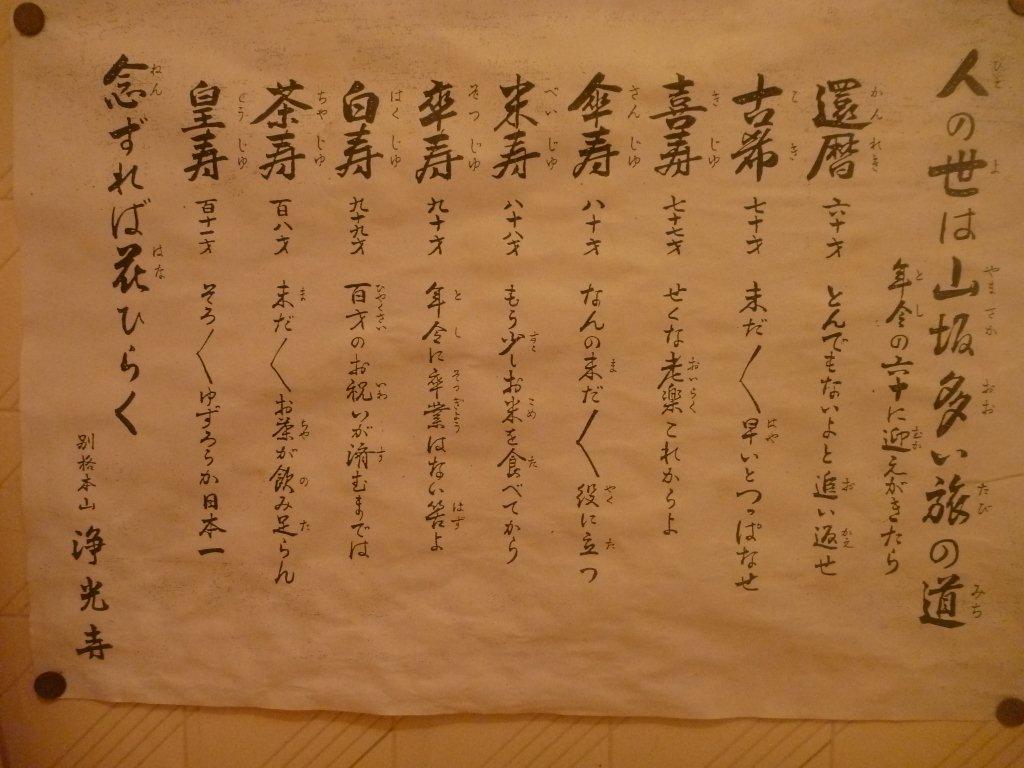 人の世は山坂多い旅の道
年令の六十に迎えがきたら
還暦 六十才 とんでもないよと追い返せ
古希 七十才 未だ〱早いとつっぱなせ
喜寿 七十七才 せくな老楽これからよ
傘寿 八十才 なんの未だ〱役に立つ
米寿 八十八才 もう少しお米を食べてから
卒寿 九十才 年令に卒業はない筈よ
白寿 九十九才 百才のお祝いが済むまでは
茶寿 百八才 未だ〱お茶が飲み足らん
皇寿 百十一才 そろ〱ゆずろうか日本一
念ずれば花ひらく
別格本山 浄光寺